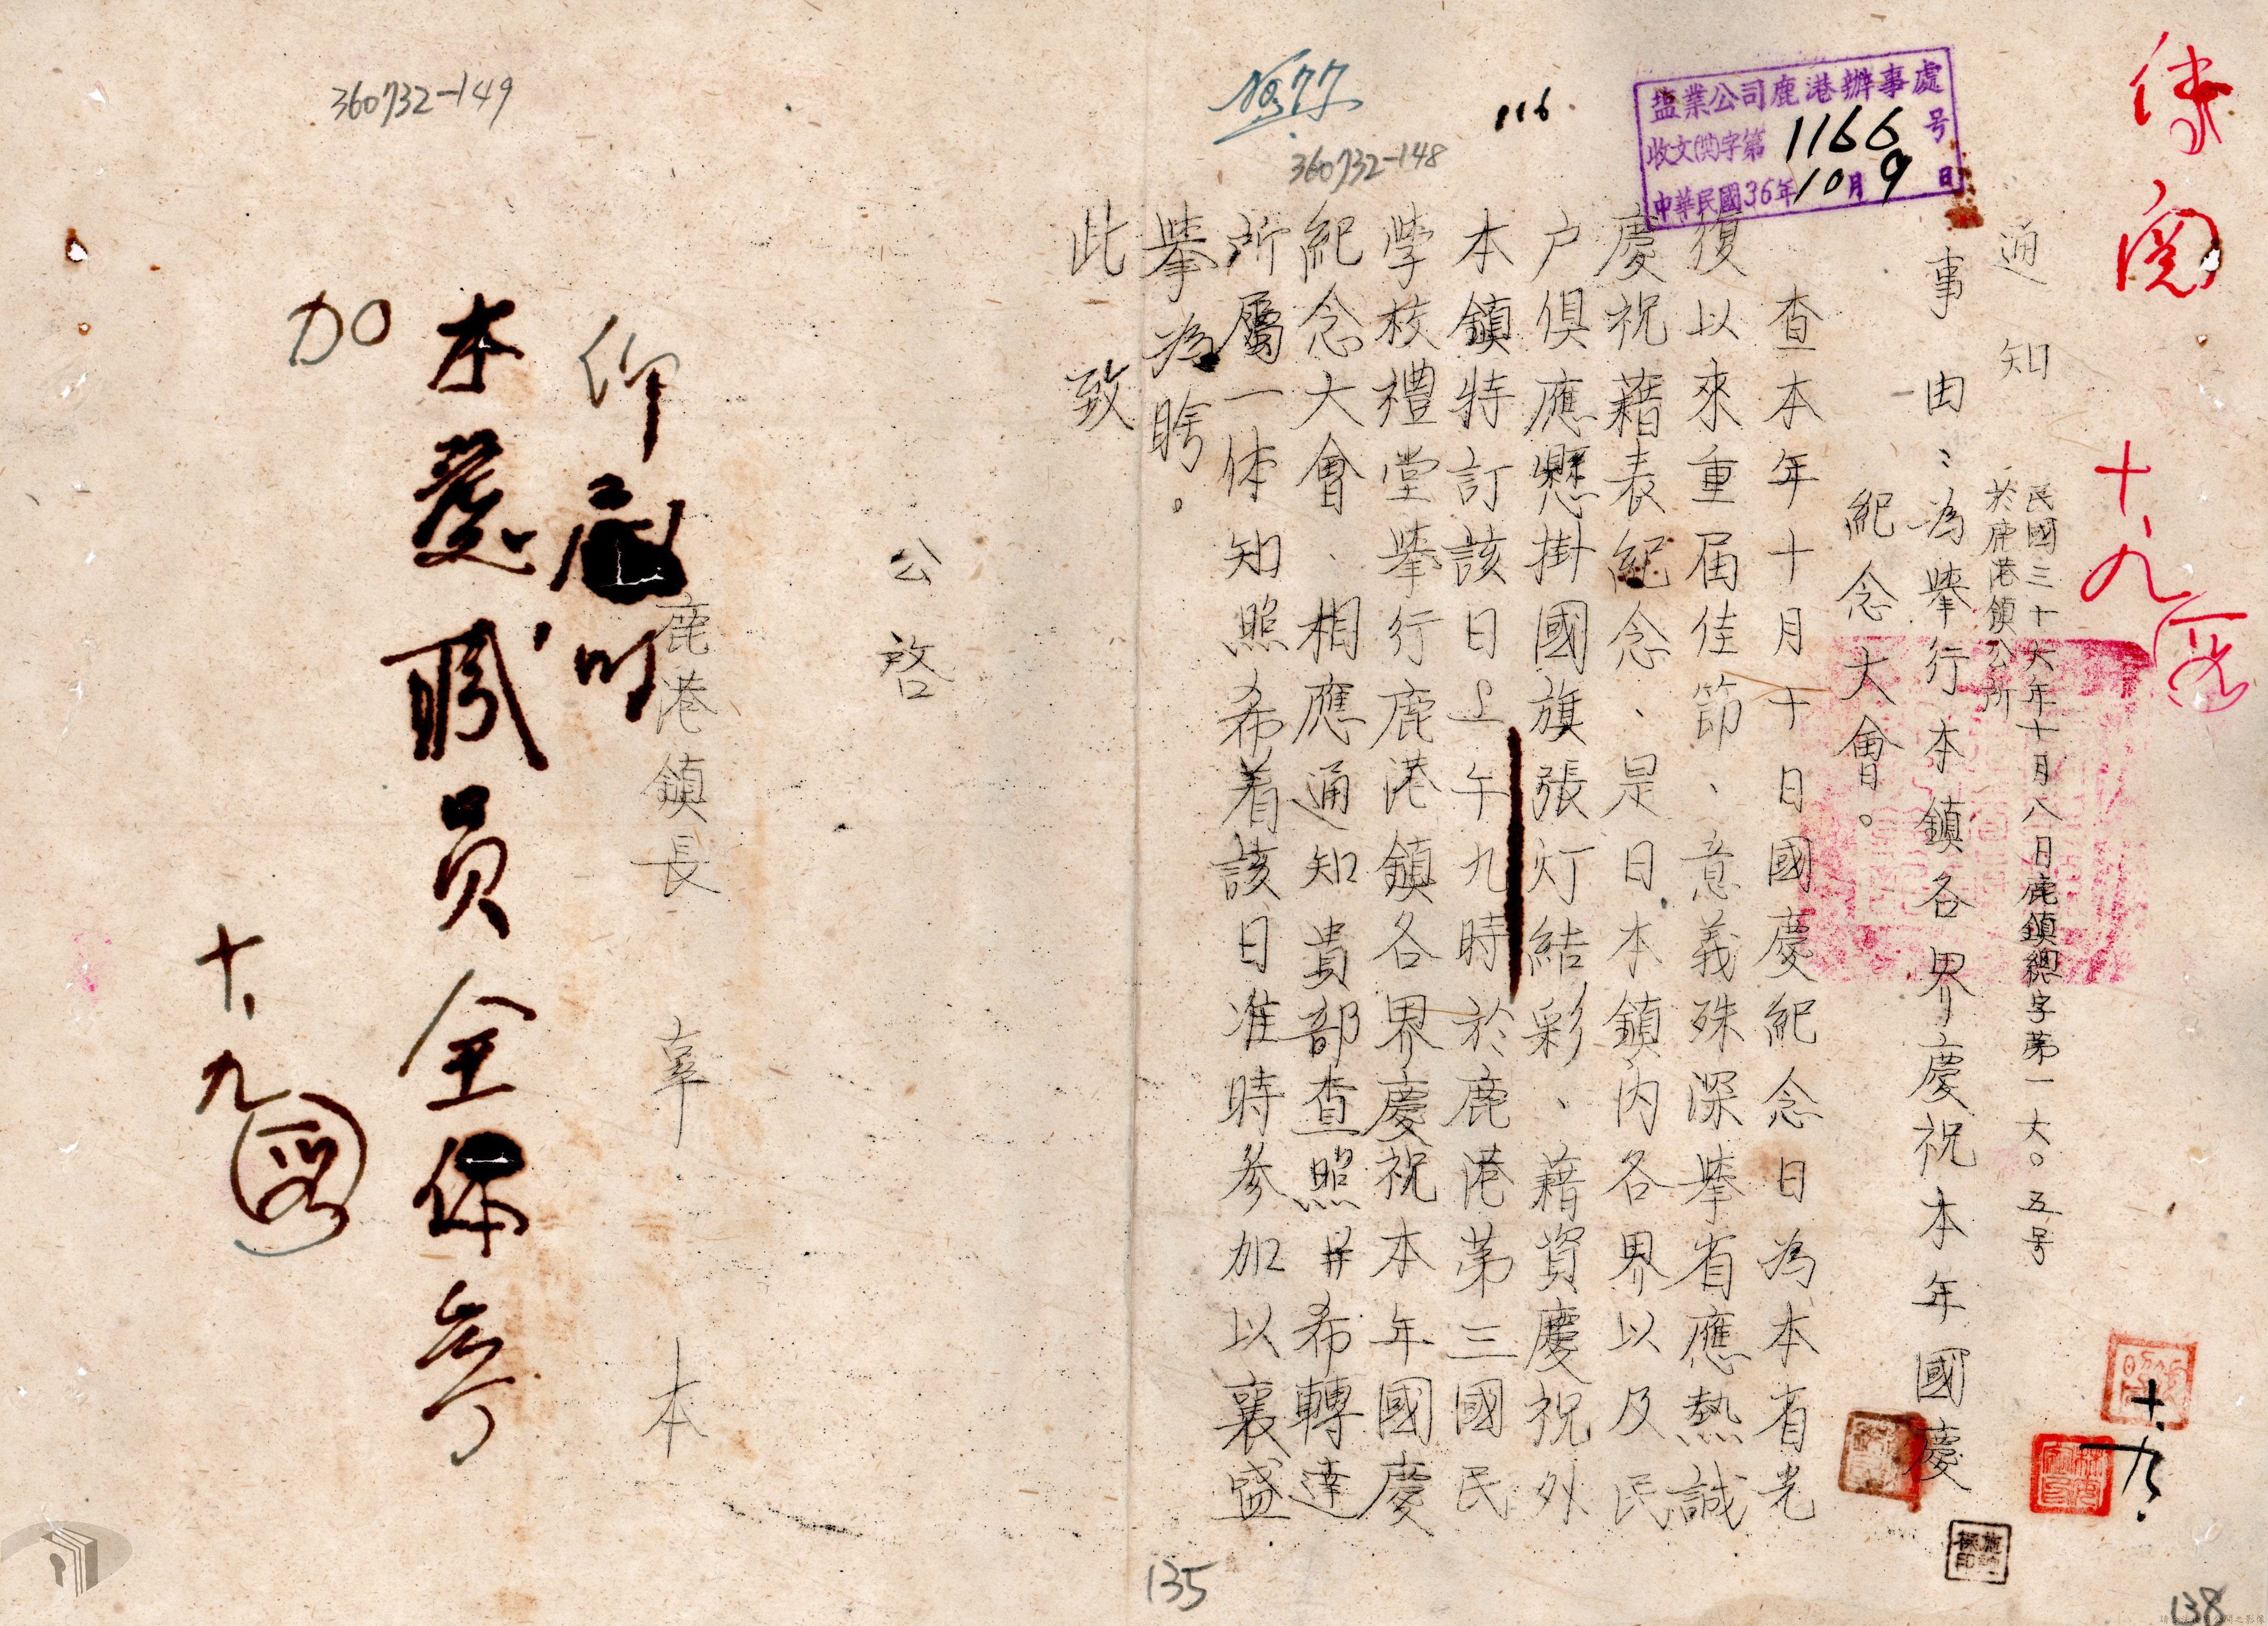 傳閱
十、九
塩業公司鹿港辦事處
收文(共)字第1166号
中華民國36年10月9日
116
No.77
360732-148
360732-149
通知
民國三十六年十月八日鹿鎮總字第一六〇五号
於鹿港鎮公所
事由:為舉行本鎮各界慶祝本年國慶
紀念大會。
查本年十月十日國慶紀念日為本省光
復以來重届佳節、意義殊深舉省應熱誠
慶祝藉表紀念、是日本鎮内各界以及民
户俱應懸掛國旗張灯結彩、藉資慶祝外
本鎮特訂該日上午九時於鹿港第三國民
學校禮堂舉行鹿港鎮各界慶祝本年國慶
紀念大會、相應通知貴部查照并希轉達
所屬一体知照希着該日准時參加以襄盛
舉為盼。
此致
公啓
鹿港鎮長 辜 本
仰
本處職員全体參
加
十、九
十、九
135
138